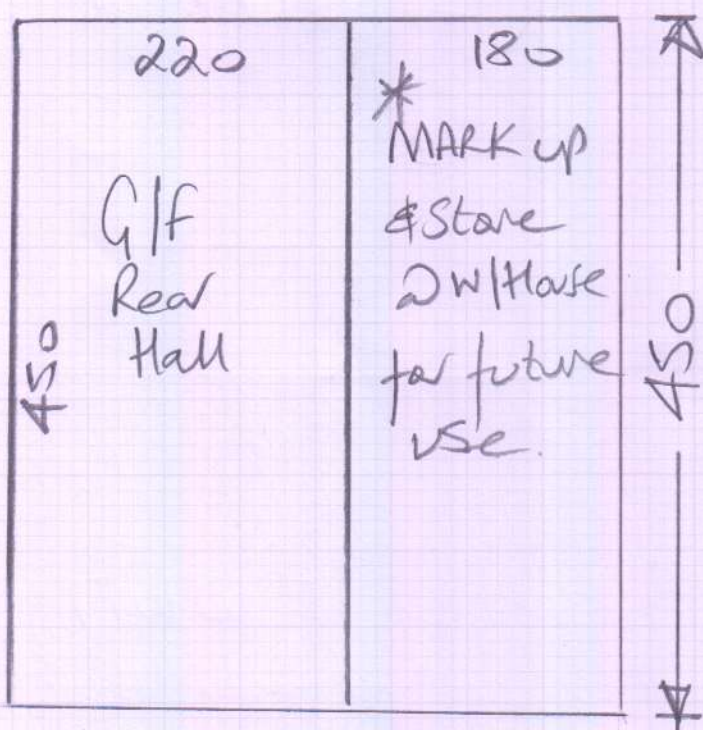 220
180
G/F
Rear
Hall
450
*
MARK up
& Store
@ W/House
for future
use.
450